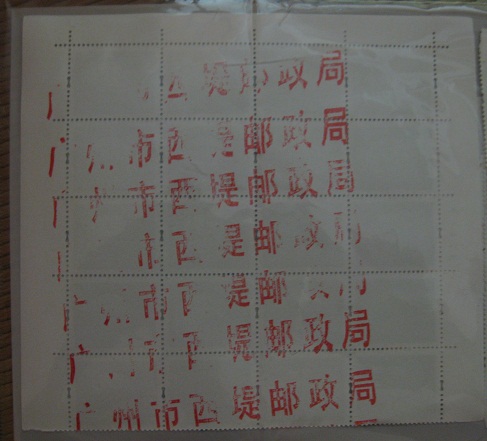 广 市西堤邮政局
广州市西堤邮政局
广州市西堤邮政局
市西堤邮政局
广州市西堤邮政局
广州市西堤邮政局
广州市西堤邮政局